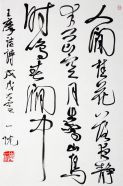 人閒桂花落夜静
春山空月出驚山鳥
時鳴春澗中
王摩詰詩 戊戌大雪 一